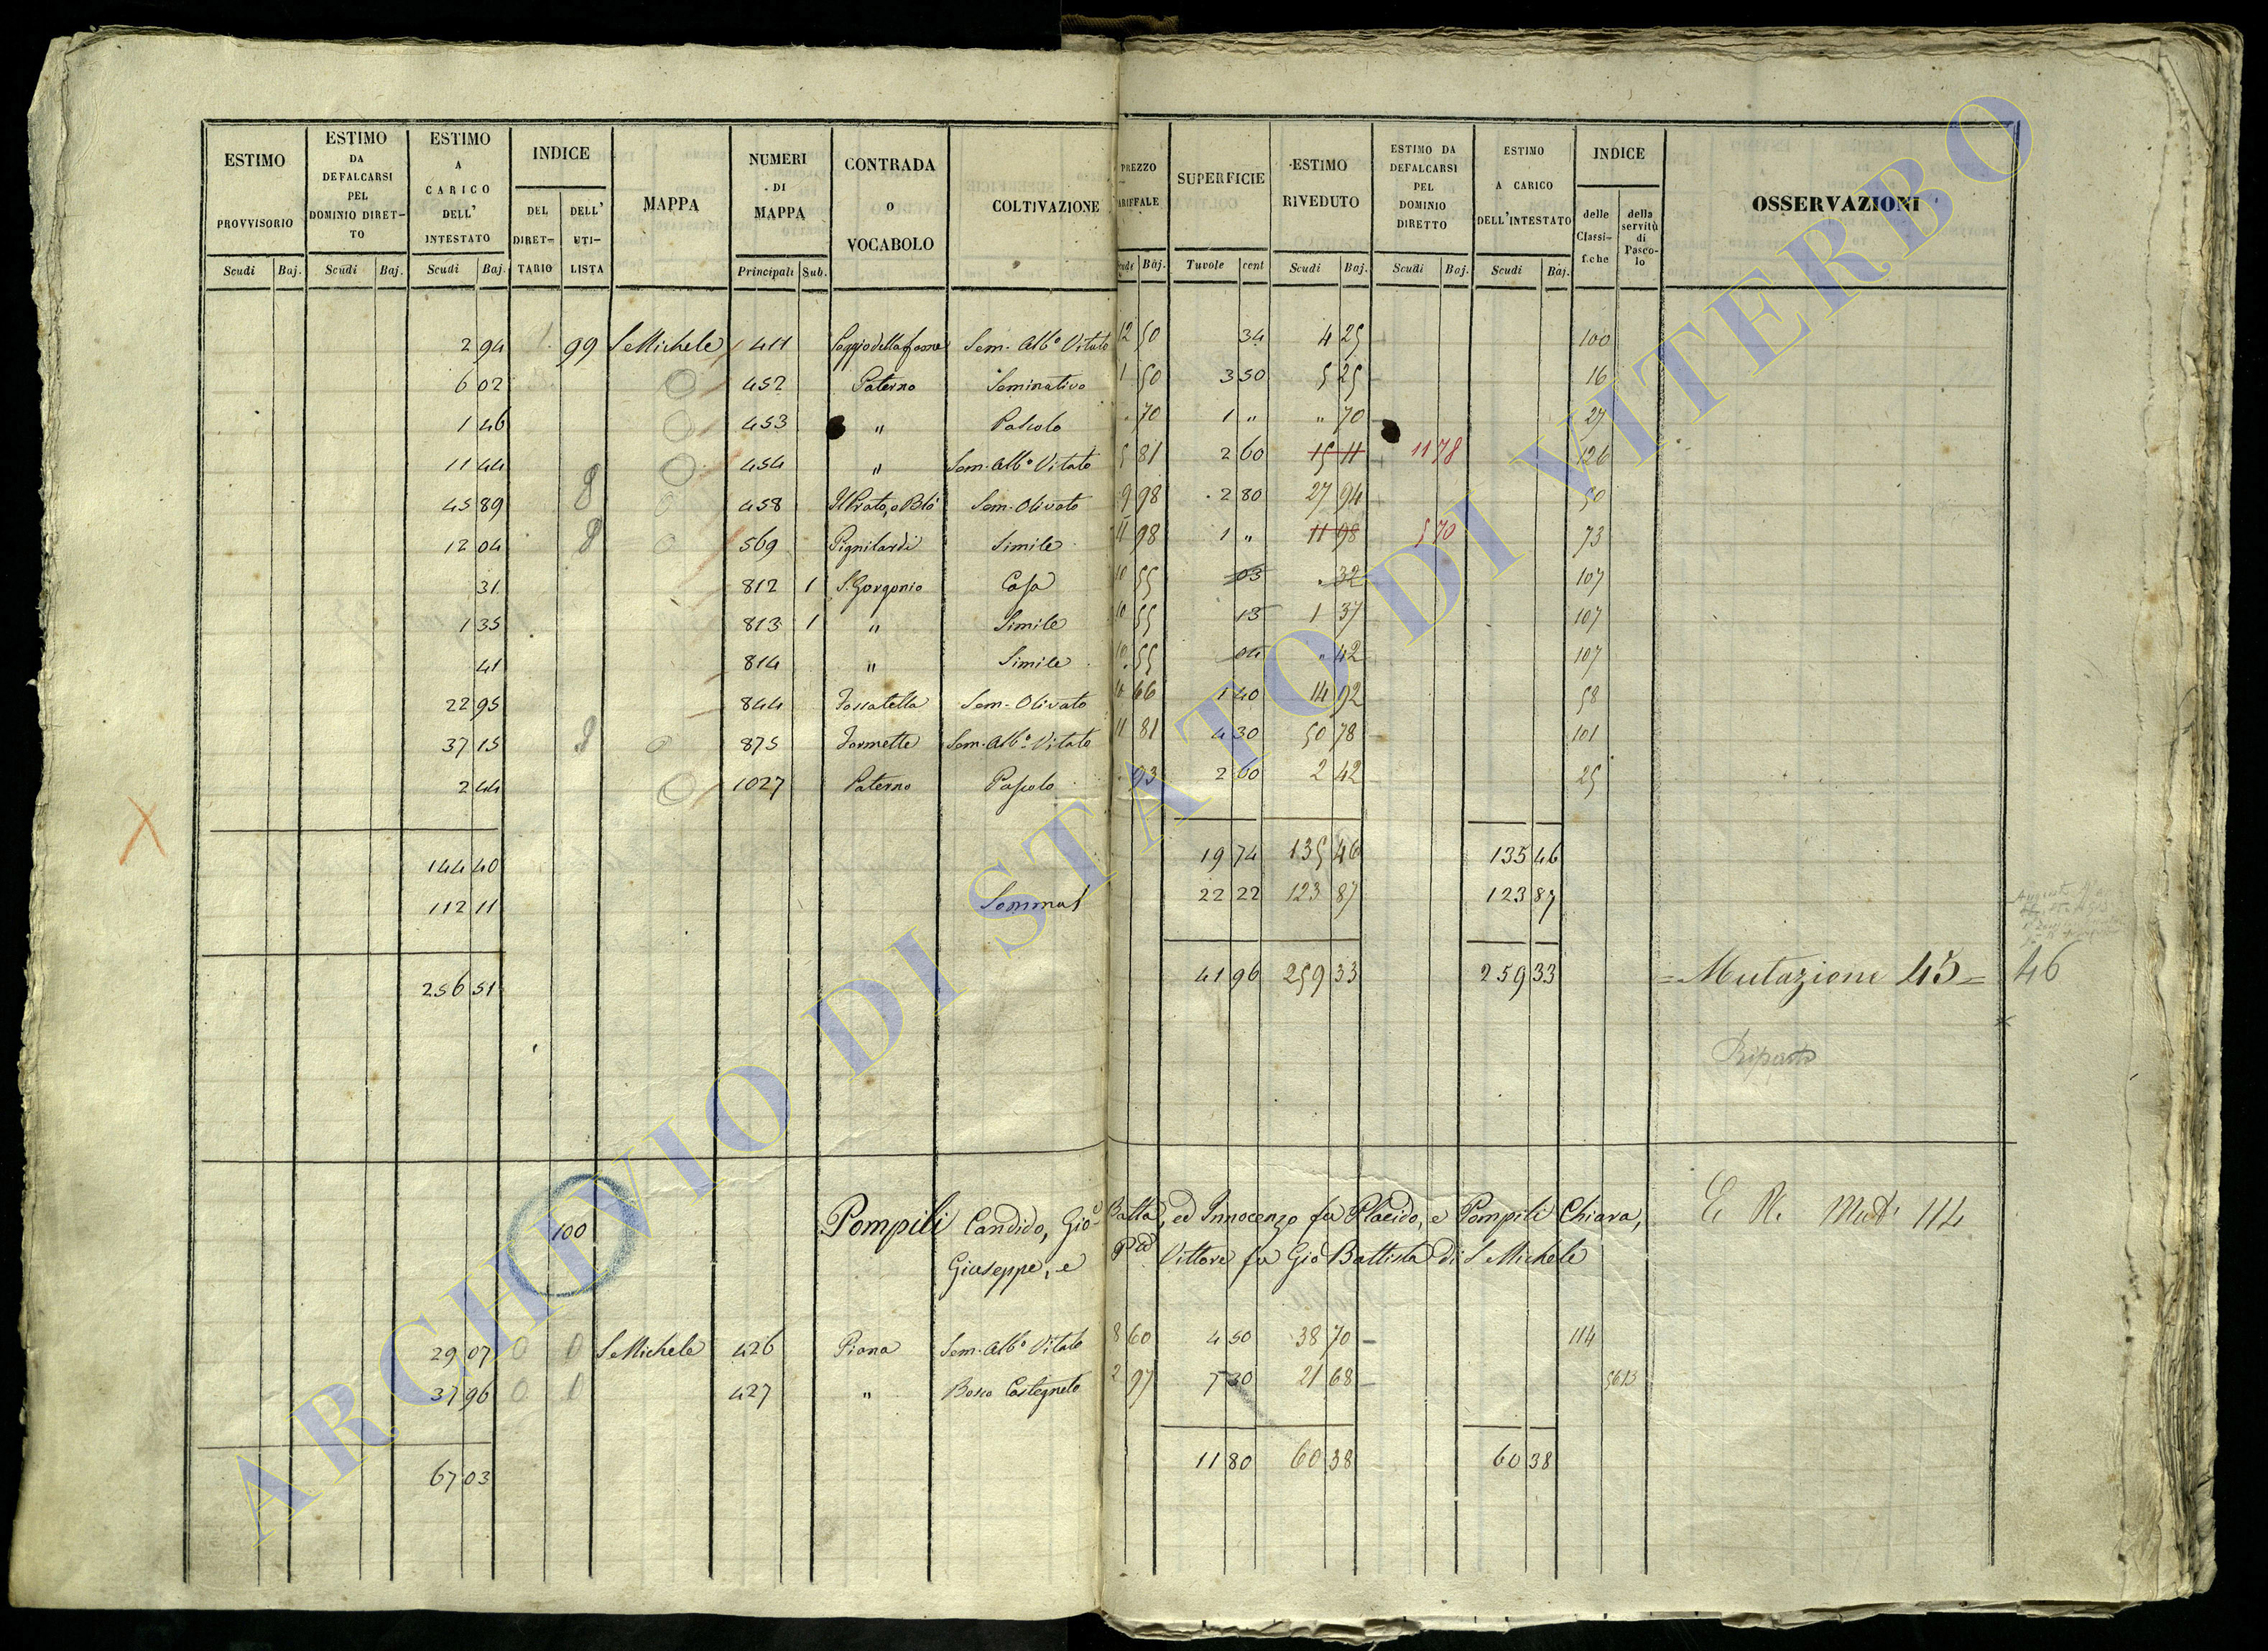 ESTIMO PROVVISORIO Scudi Baj.
ESTIMO DA DEFALCARSI PEL DOMINIO DIRET- TO Scudi Baj.
ESTIMO A CARICO DELL' INTESTATO Scudi Baj.
INDICE DEL DIRET- TARIO DELL' UTI- LISTA
MAPPA
NUMERI DI MAPPA Principali Sub.
CONTRADA o VOCABOLO
COLTIVAZIONE
PREZZO TARIFFALE Scudi Baj.
SUPERFICIE Tavole cent
ESTIMO RIVEDUTO Scudi Baj.
ESTIMO DA DEFALCARSI PEL DOMINIO DIRETTO Scudi Baj.
ESTIMO A CARICO DELL'INTESTATO Scudi Baj.
INDICE delle Classi- fiche della servitù di Pasco- lo
OSSERVAZIONI
2 94 99 S Michele 411 Sem. Alb.º Vitato 12 50 34 4 25 100
6 02 452 Paterno Seminativo 1 50 3 50 5 25 16
1 46 453 " Pascolo 70 1 " " 70 27
11 44 454 " Sem. Alb.º Vitato 5 81 2 60 15 11 11 78 126
45 89 8 458 Il Prato, o Sem. Olivato 9 98 2 80 27 94 50
12 04 8 569 Pignilardi Simile 11 98 1 " 11 98 5 70 73
31 812 1 S. Gorgonio Casa 10 55 03 " 32 107
1 35 813 1 " Simile 10 55 13 1 37 107
41 814 " Simile 10 55 04 " 42 107
22 95 844 Fossatella Sem. Olivato 10 66 1 40 14 92 58
37 15 8 875 Formette Sem. Alb.º Vitato 11 81 4 30 50 78 101
2 44 1027 Paterno Pascolo 93 2 60 2 42 25
X
144 40 19 74 135 46 135 46
112 11 Somma 22 22 123 87 123 87
256 51 41 96 259 33 259 33 = Mutazione 45 = 46
Riporto
100 Pompili Candido, Gio Batta, ed Innocenzo fu Placido, e Pompili Chiara, E N. Mut. 114
Giuseppe, e Vittore fu Gio Battista di S Michele
29 07 0 0 S Michele 426 Piana Sem. Alb.º Vitato 8 60 4 50 38 70 114
37 96 0 0 427 " Bosco Castagneto 2 97 7 30 21 68 5613
67 03 11 80 60 38 60 38
ARCHIVIO DI STATO DI VITERBO